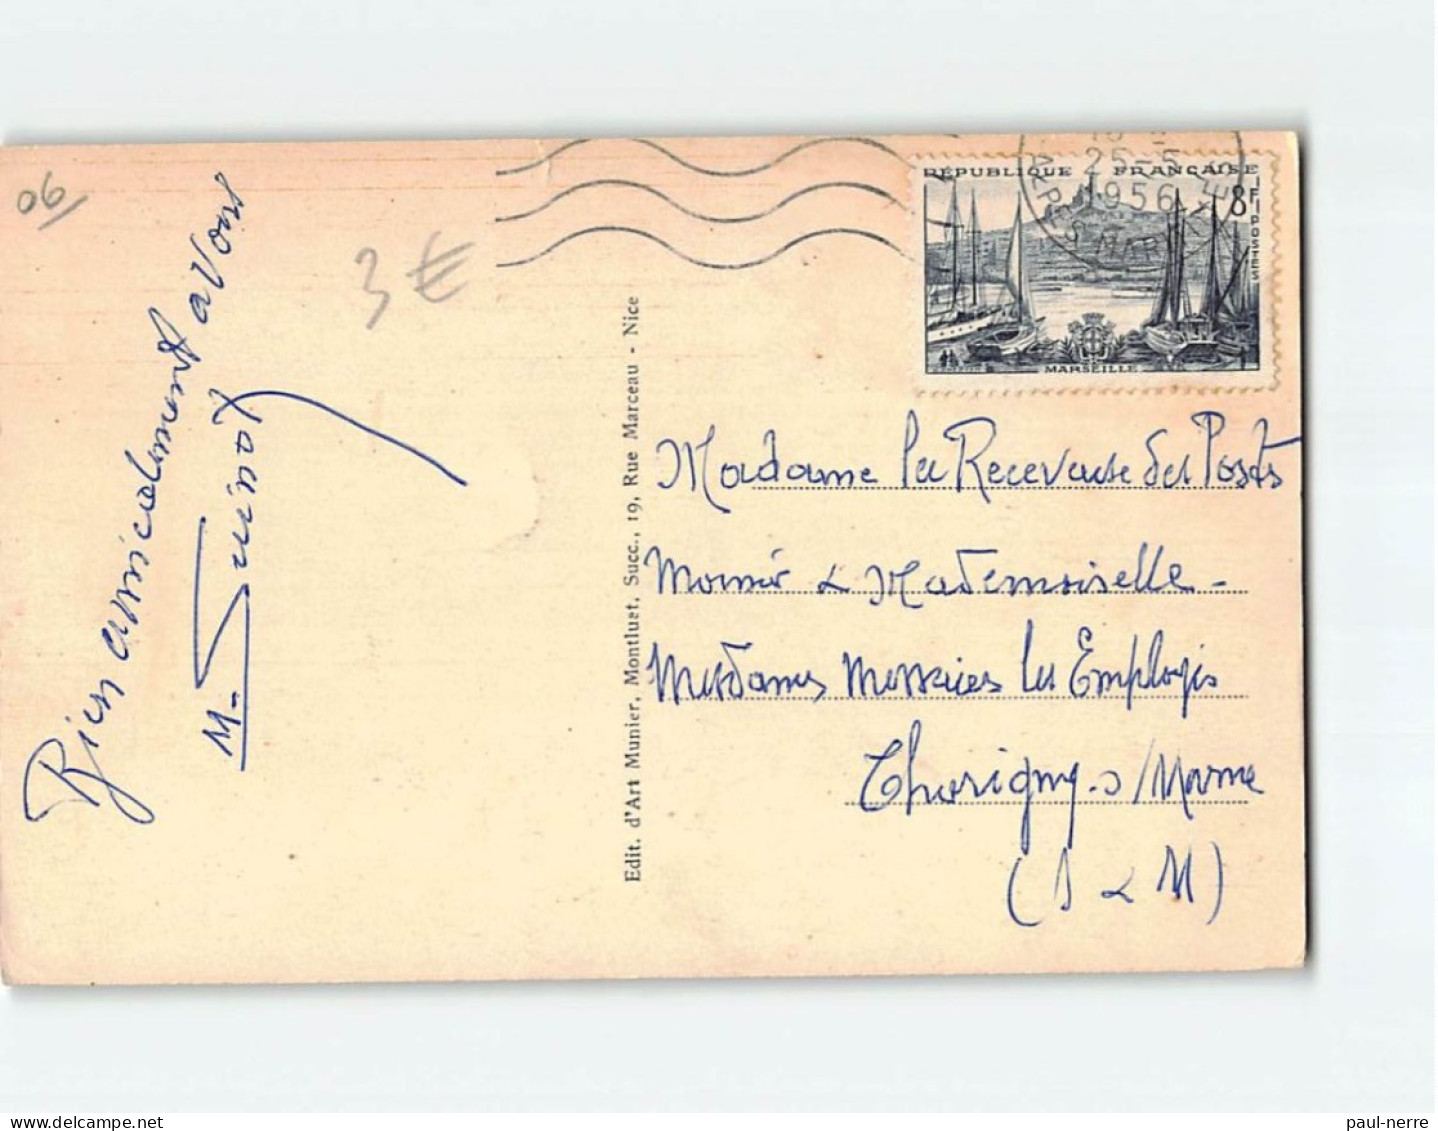 06
3 €
Bien amicalement a Vous
M.
Edit. d'Art Munier, Montlust, Succ., 19, Rue Marceau - Nice
25-5
1956
ALPES MAR
RÉPUBLIQUE FRANÇAISE
8F
POSTES
MARSEILLE
Madame la Receveuse des Postes
& Mademoiselle -
Mesdames Messieurs les Employés
Thorigny-s/Marne
(S & M)
delcampe.net
paul-nerre